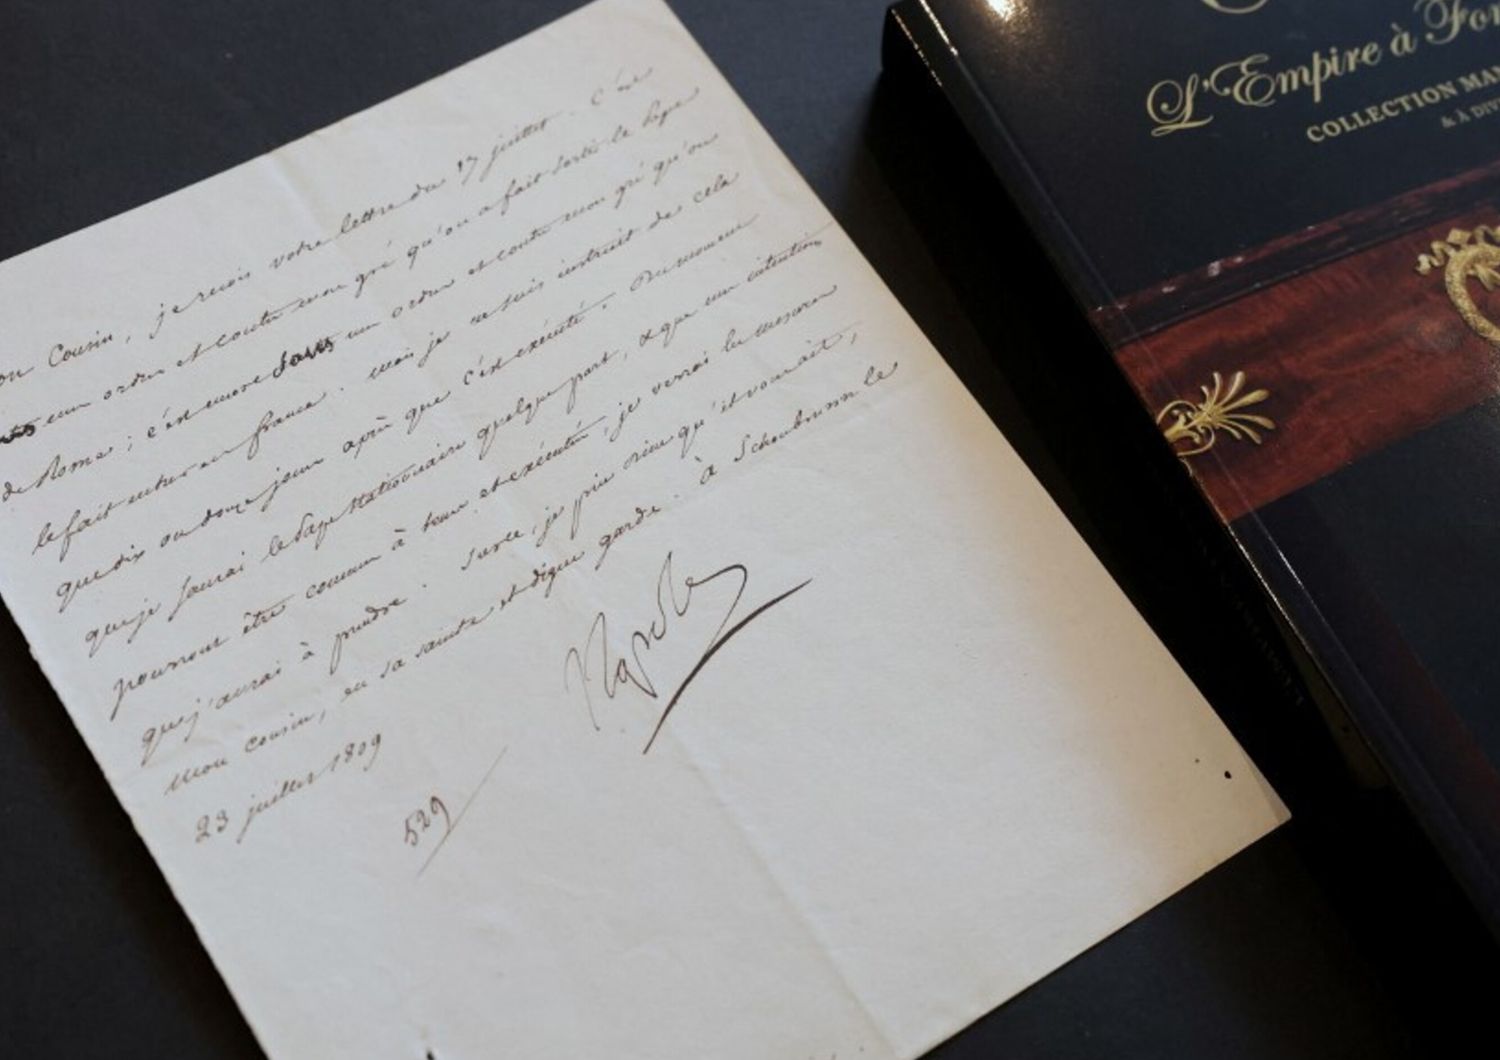 on Cousin, je reçois votre lettre du 17 juillet. C'est
sans mon ordre et contre mon gré qu'on a fait sortir le Pape
de Rome; c'est encore sans mon ordre et contre mon gré qu'on
le fait entrer en france. mais je ne suis instruit de cela
que dix ou douze jours après que c'est exécuté. Du moment
que je saurai le Pape stationnaire quelque part, & que mes intentions
pourront être connues à tems et exécutées, je verrai les mesures
que j'aurai à prendre. Sur ce, je prie Dieu qu'il vous ait,
mon cousin, en sa sainte et digne garde. à Schonbrunn le
23 juillet 1809
529
Napole
L'Empire à Fon
COLLECTION MAR
& À DIV